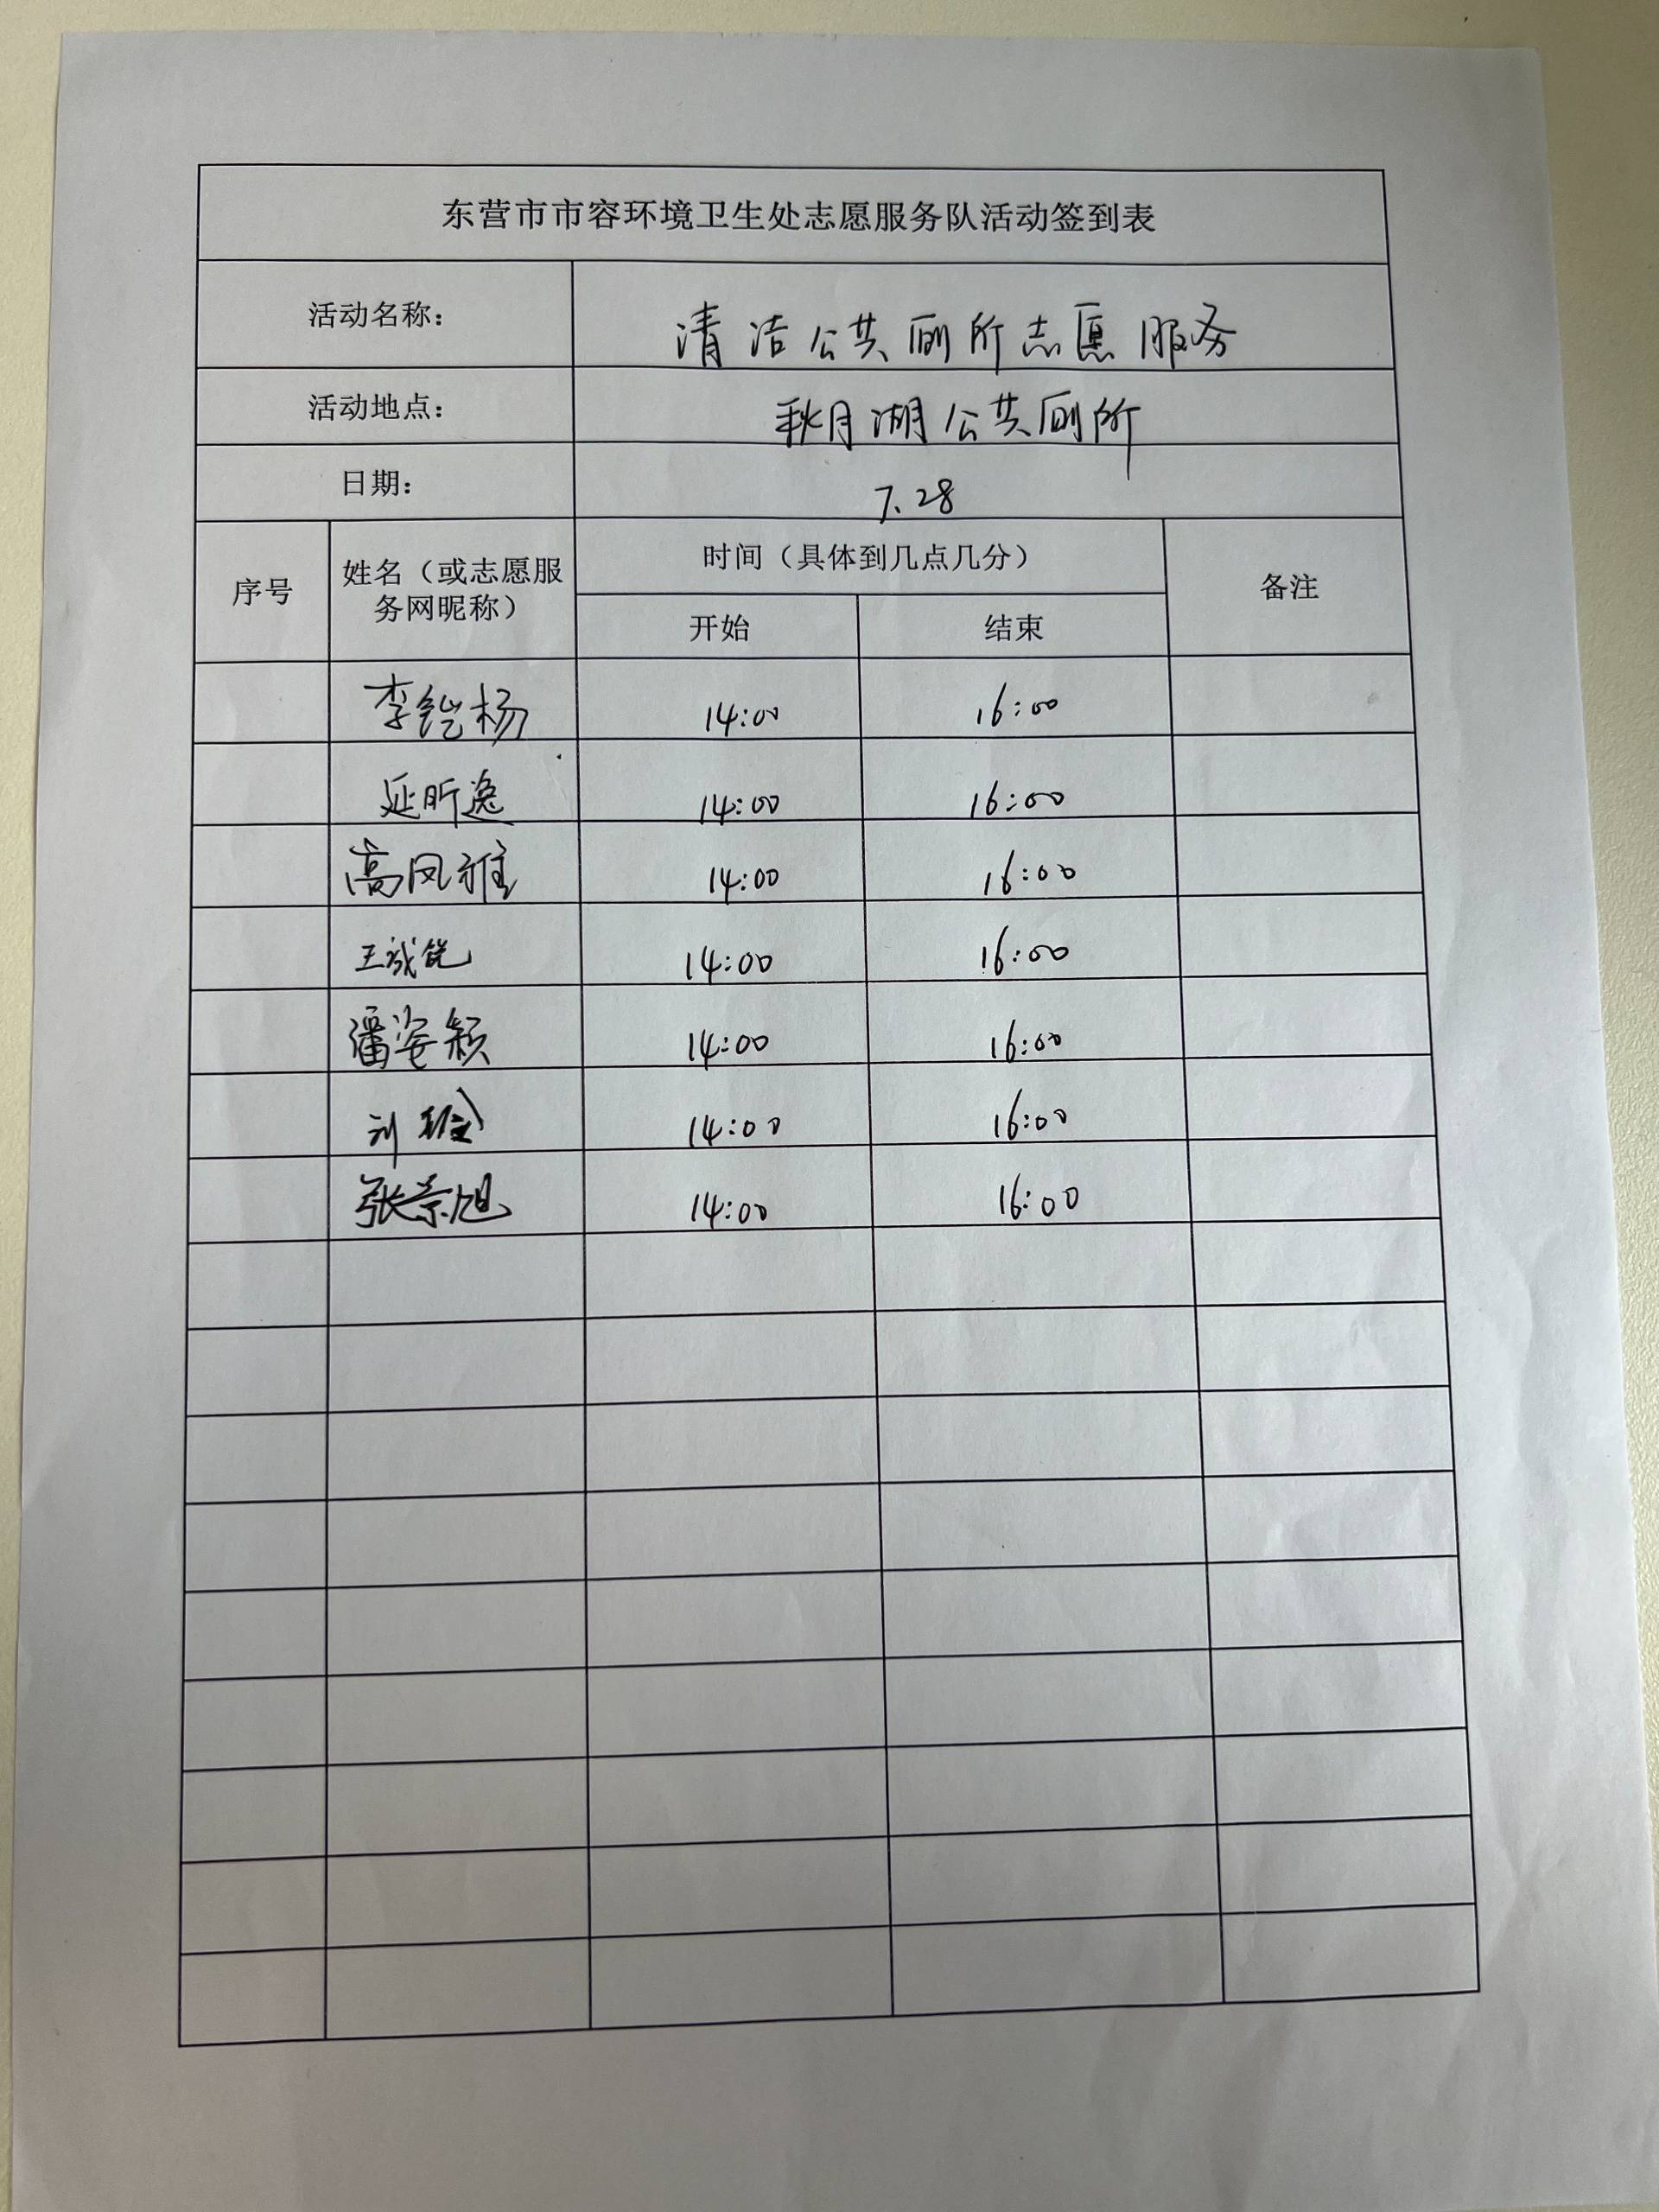 东营市市容环境卫生处志愿服务队活动签到表
活动名称： 清洁公共厕所志愿服务
活动地点： 秋月湖公共厕所
日期： 7.28
序号 姓名（或志愿服务网昵称） 时间（具体到几点几分） 备注
开始 结束
李铠杨 14:00 16:00
延昕逸 14:00 16:00
高风雅 14:00 16:00
王诚 14:00 16:00
潘姿颖 14:00 16:00
刘 14:00 16:00
张景旭 14:00 16:00